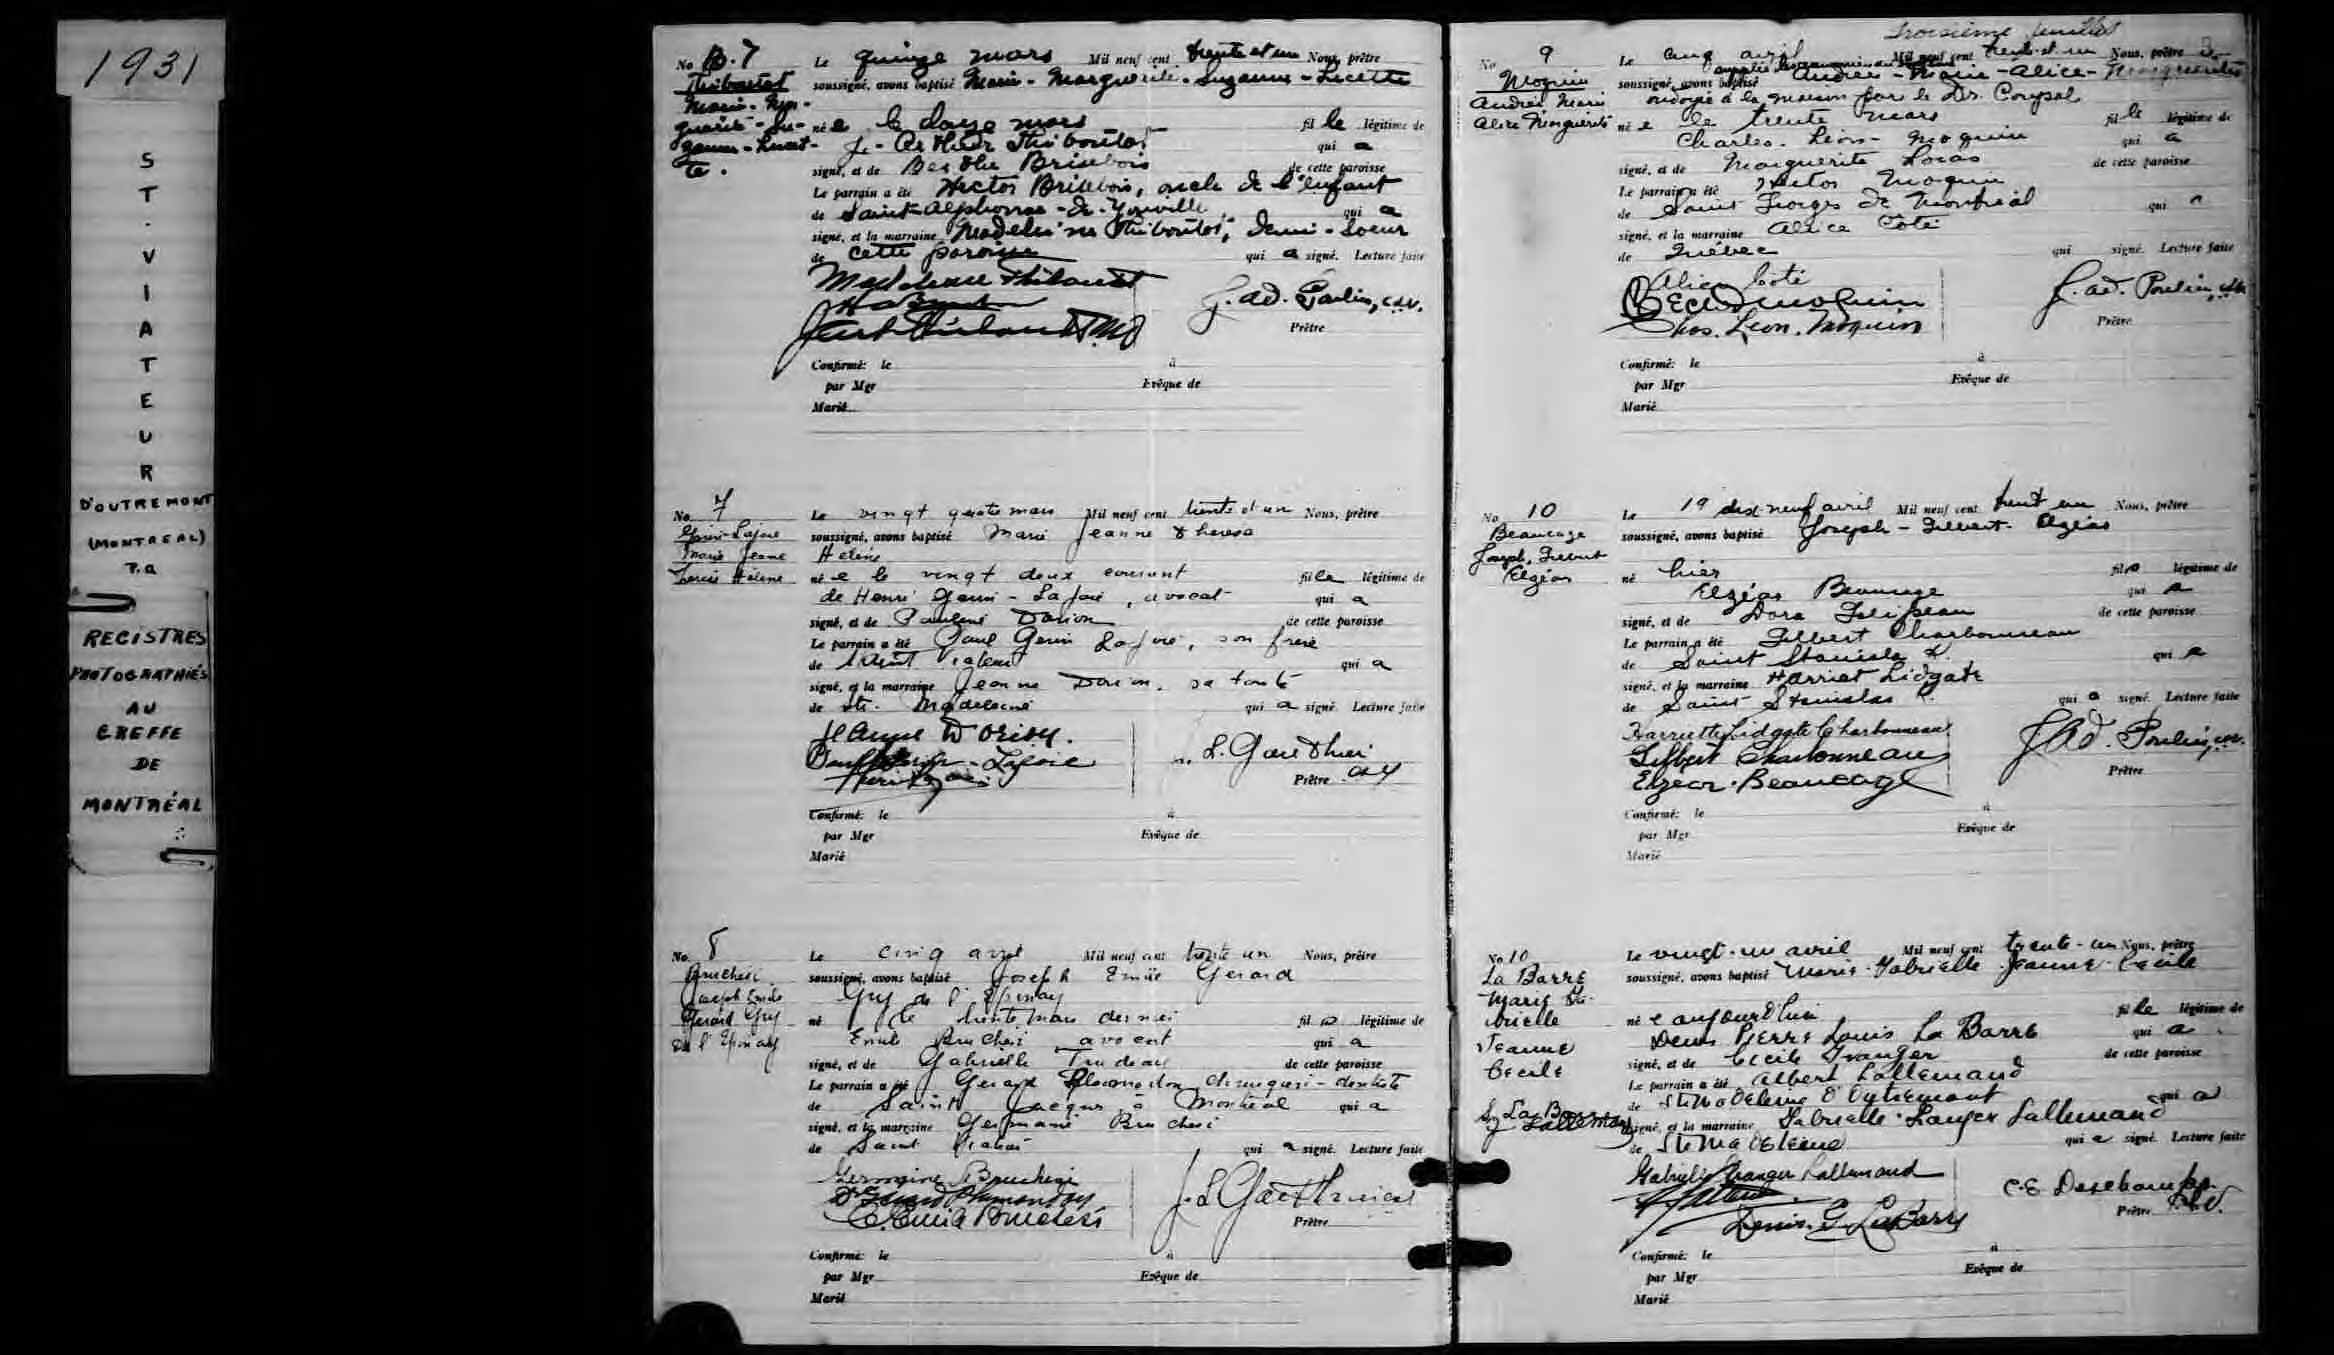 1931
ST. VIATEUR
D'OUTREMONT
(MONTREAL)
P.Q
REGISTRES
PHOTOGRAPHIÉS
AU
GREFFE
DE
MONTRÉAL
No B. 7
Le quinze mars Mil neuf cent trente et un Nous, prêtre
soussigné, avons baptisé Marie - Marguerite - Suzanne - Lucette
née le douze mars fille légitime de
J.- Arthur Thiboutot qui a
signé, et de Berthe Brisebois de cette paroisse
Le parrain a été Hector Brisebois, oncle de l'enfant
de Saint-Alphonse-d'Youville qui a
signé, et la marraine Madeleine Thiboutot, demi-soeur
de cette paroisse qui a signé. Lecture faite
J. Ad. Poulin, c.s.v.
Prêtre
Confirmé: le à
par Mgr Evêque de
Marié
No 7
Gerin-Lajoie
Marie Jeanne
Therese Helene
Le vingt quatre mars Mil neuf cent trente et un Nous, prêtre
soussigné, avons baptisé Marie Jeanne Theresa
Helene
née le vingt deux courant fille légitime de
de Henri Gerin - Lajoie, avocat qui a
signé, et de Pauline Dorion de cette paroisse
Le parrain a été Paul Gerin Lajoie, son frere
de Saint Viateur qui a
signé, et la marraine Jeanne Dorion, sa tante
de Ste. Madeleine qui a signé. Lecture faite
Jeanne Dorion.
Paul Gerin-Lajoie
L. Gauthier
Prêtre csv
Confirmé: le à
par Mgr Evêque de
Marié
No 8
Bruchesi
Joseph Emile
Gerard Guy
de l'Epinay
Le cinq avril Mil neuf cent trente un Nous, prêtre
soussigné, avons baptisé Joseph Emile Gerard
Guy de l'Epinay
né le trente mars dernier fils légitime de
Emile Bruchesi avocat qui a
signé, et de Gabrielle Trudeau de cette paroisse
Le parrain a été Gerard Plamondon chirurgien-dentiste
de Saint Jacques à Montreal qui a
signé, et la marraine Germaine Bruchesi
de Saint Viateur qui a signé. Lecture faite
Germaine Bruchesi
Dr Gerard Plamondon
C. Emile Bruchesi
J. L. Gauthier
Prêtre
Confirmé: le à
par Mgr Evêque de
Marié
Troisième feuillet
No 9
Moquin
Andrée Marie
Alice Marguerite
Le cinq avril Mil neuf cent trente et un Nous, prêtre
soussigné, avons baptisé Andrée - Marie - Alice - Marguerite
ondoyé à la maison par le Dr. Coupal
née le trente mars fille légitime de
Charles - Léon - Moquin qui a
signé, et de Marguerite Lucas de cette paroisse
Le parrain a été Hector Moquin
de Saint Georges de Montréal qui a
signé, et la marraine Alice Coté
de Québec qui signé. Lecture faite
Alice Coté
Chas. Leon. Moquin
J. Ad. Poulin, csv
Prêtre
Confirmé: le à
par Mgr Evêque de
Marié
No 10
Beaucage
Joseph, Gilbert
Elzéar
Le 19 dix-neuf avril Mil neuf cent trent un Nous, prêtre
soussigné, avons baptisé Joseph - Gilbert - Elzéar
né hier fils légitime de
Elzéar Beaucage qui a
signé, et de Dora de cette paroisse
Le parrain a été Gilbert Charbonneau
de Saint Stanislas K. qui a
signé, et la marraine Harriet Lidgate
de Saint Stanislas K. qui a signé. Lecture faite
Harriette Lidgate Charbonneau
Gilbert Charbonneau
Elzear Beaucage
J Ad. Poulin, csv.
Prêtre
Confirmé: le à
par Mgr Evêque de
Marié
No 10
La Barre
Marie Ga-
brielle
Jeanne
Cecile
Le vingt-un avril Mil neuf cent trente-un Nous, prêtre
soussigné, avons baptisé Marie - Gabrielle Jeanne - Cecile
née aujourd'hui fille légitime de
Denis Pierre Louis La Barre qui a
signé, et de Cecile Granger de cette paroisse
Le parrain a été Albert Lallemand
de Ste Madeleine d'Outremont qui a
signé, et la marraine Gabrielle Granger Lallemand
de Ste Madeleine qui a signé. Lecture faite
Gabrielle Granger Lallemand
Denis G LaBarre
C. E. Deschamps
Prêtre
Confirmé: le à
par Mgr Evêque de
Marié